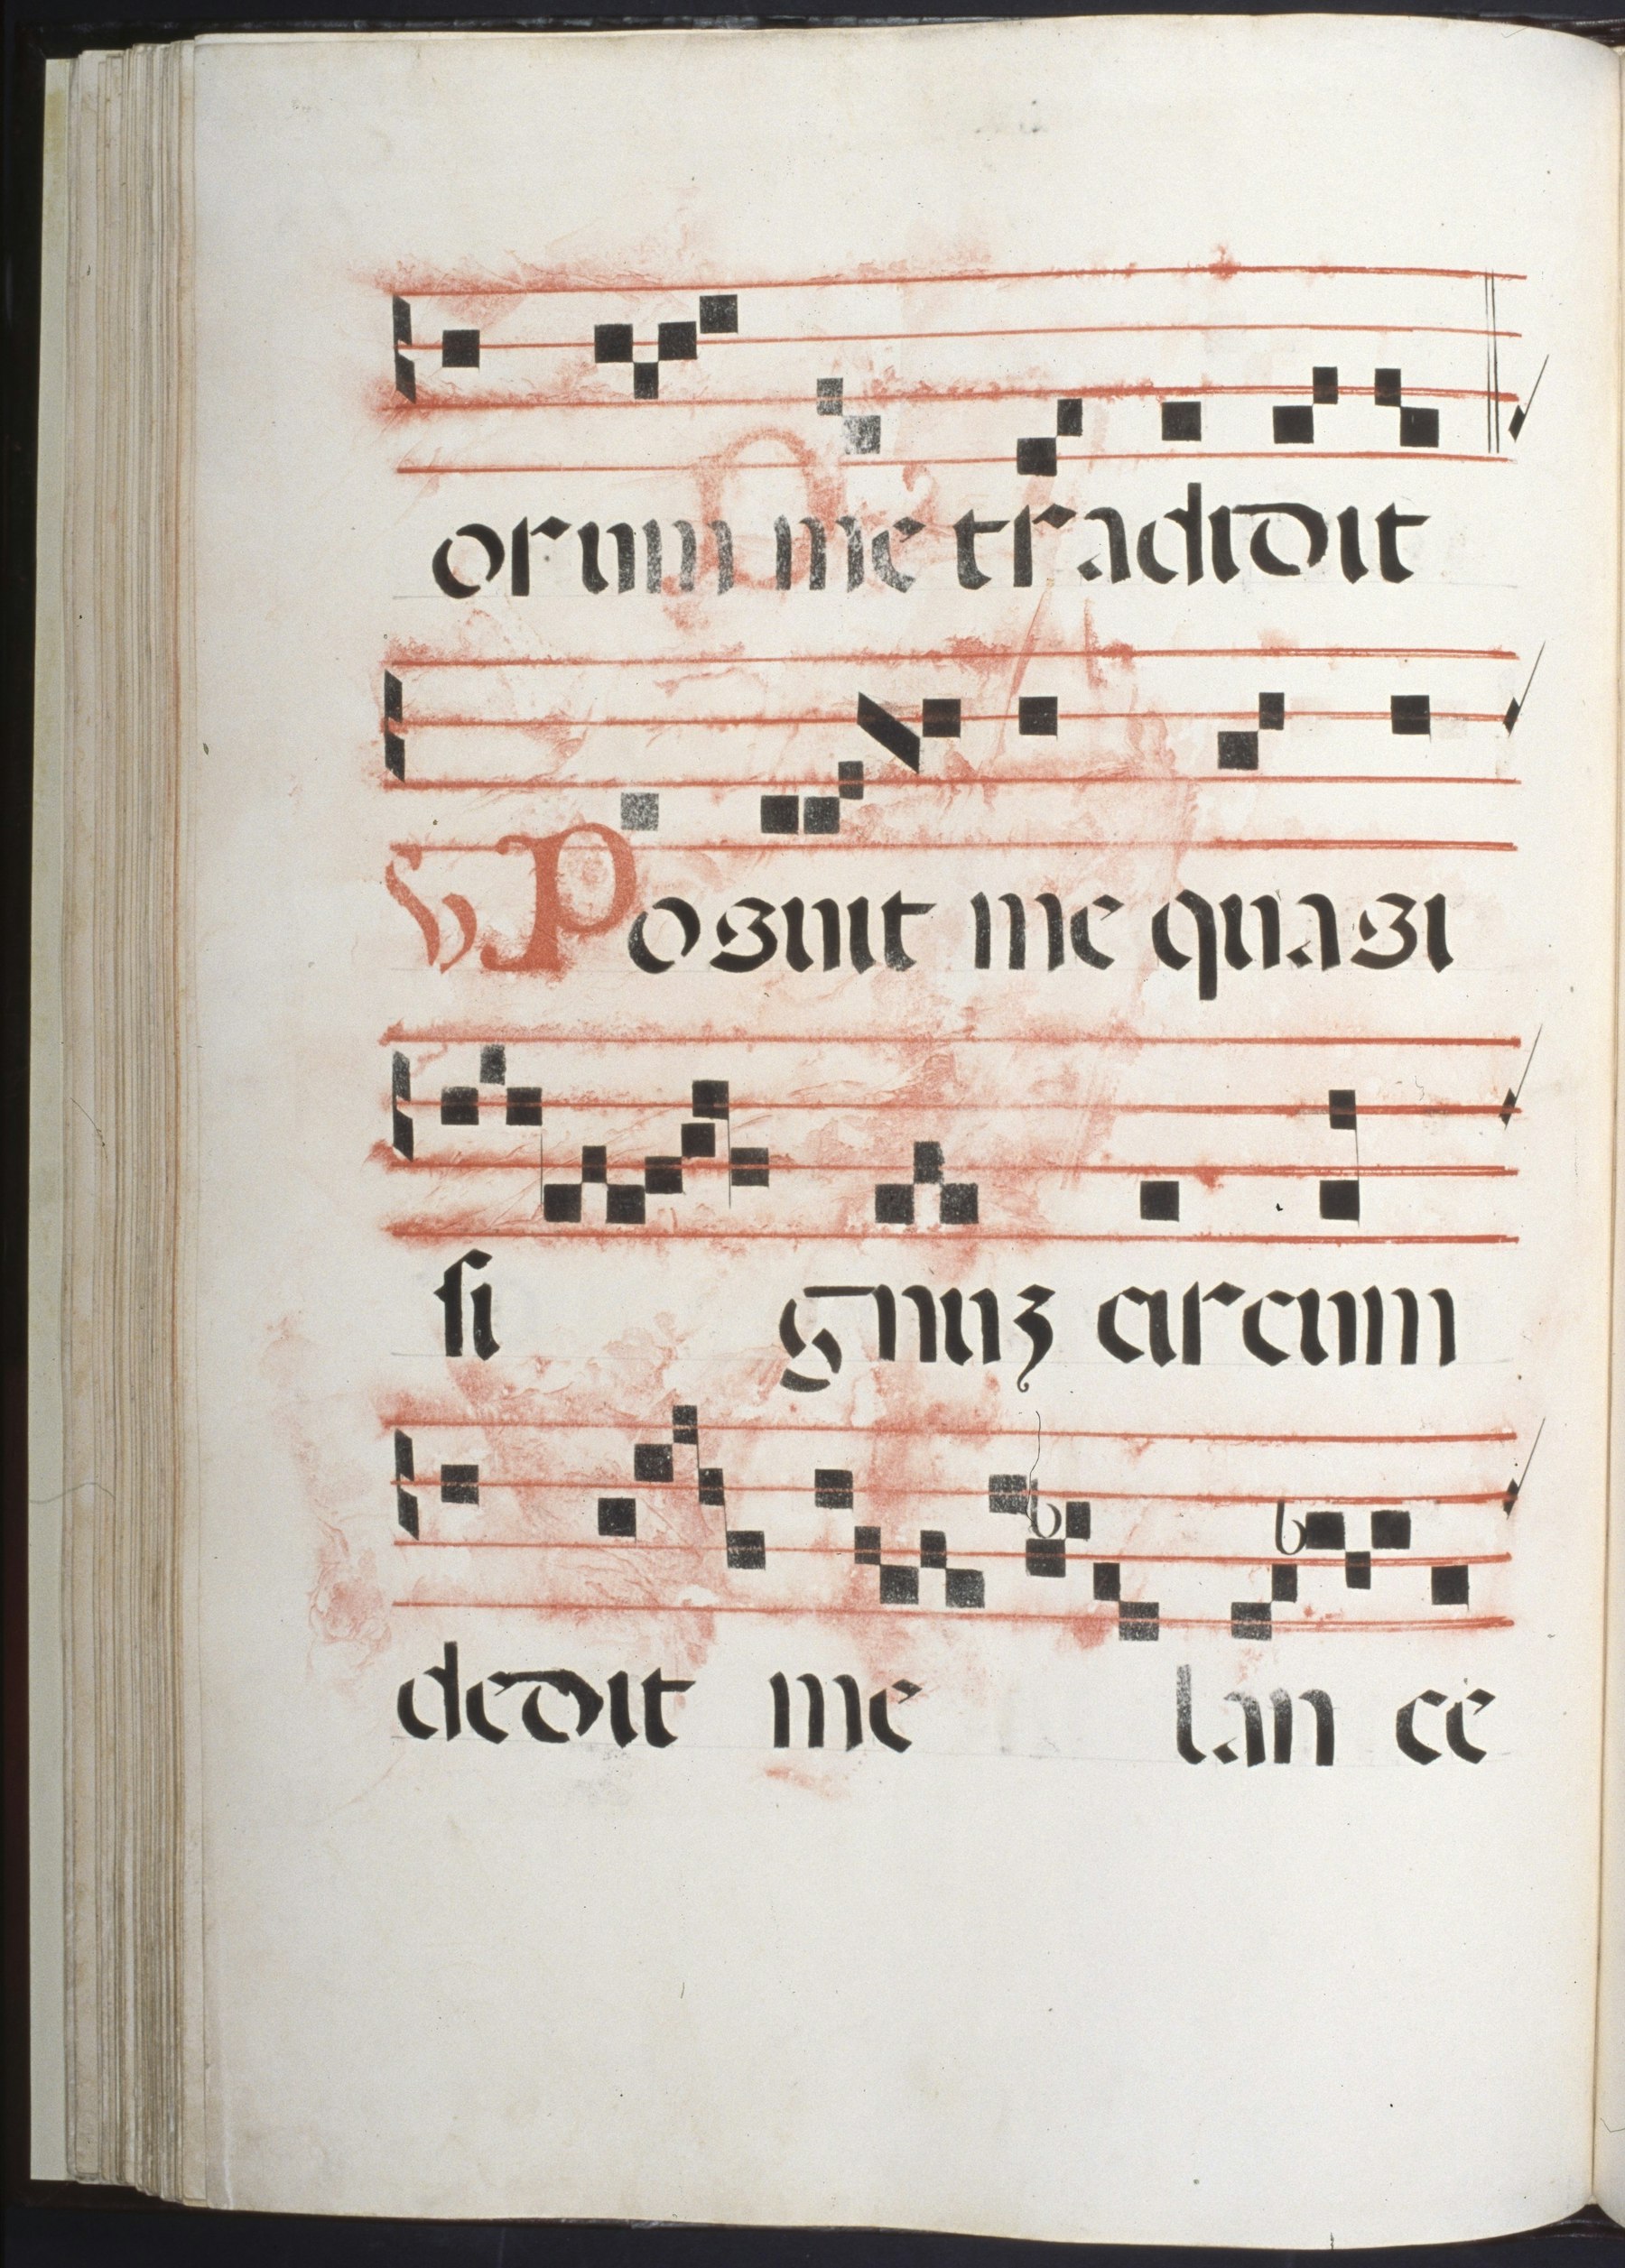 orum me tradidit
V Posuit me quasi
si gnuz circum
dedit me lan ce